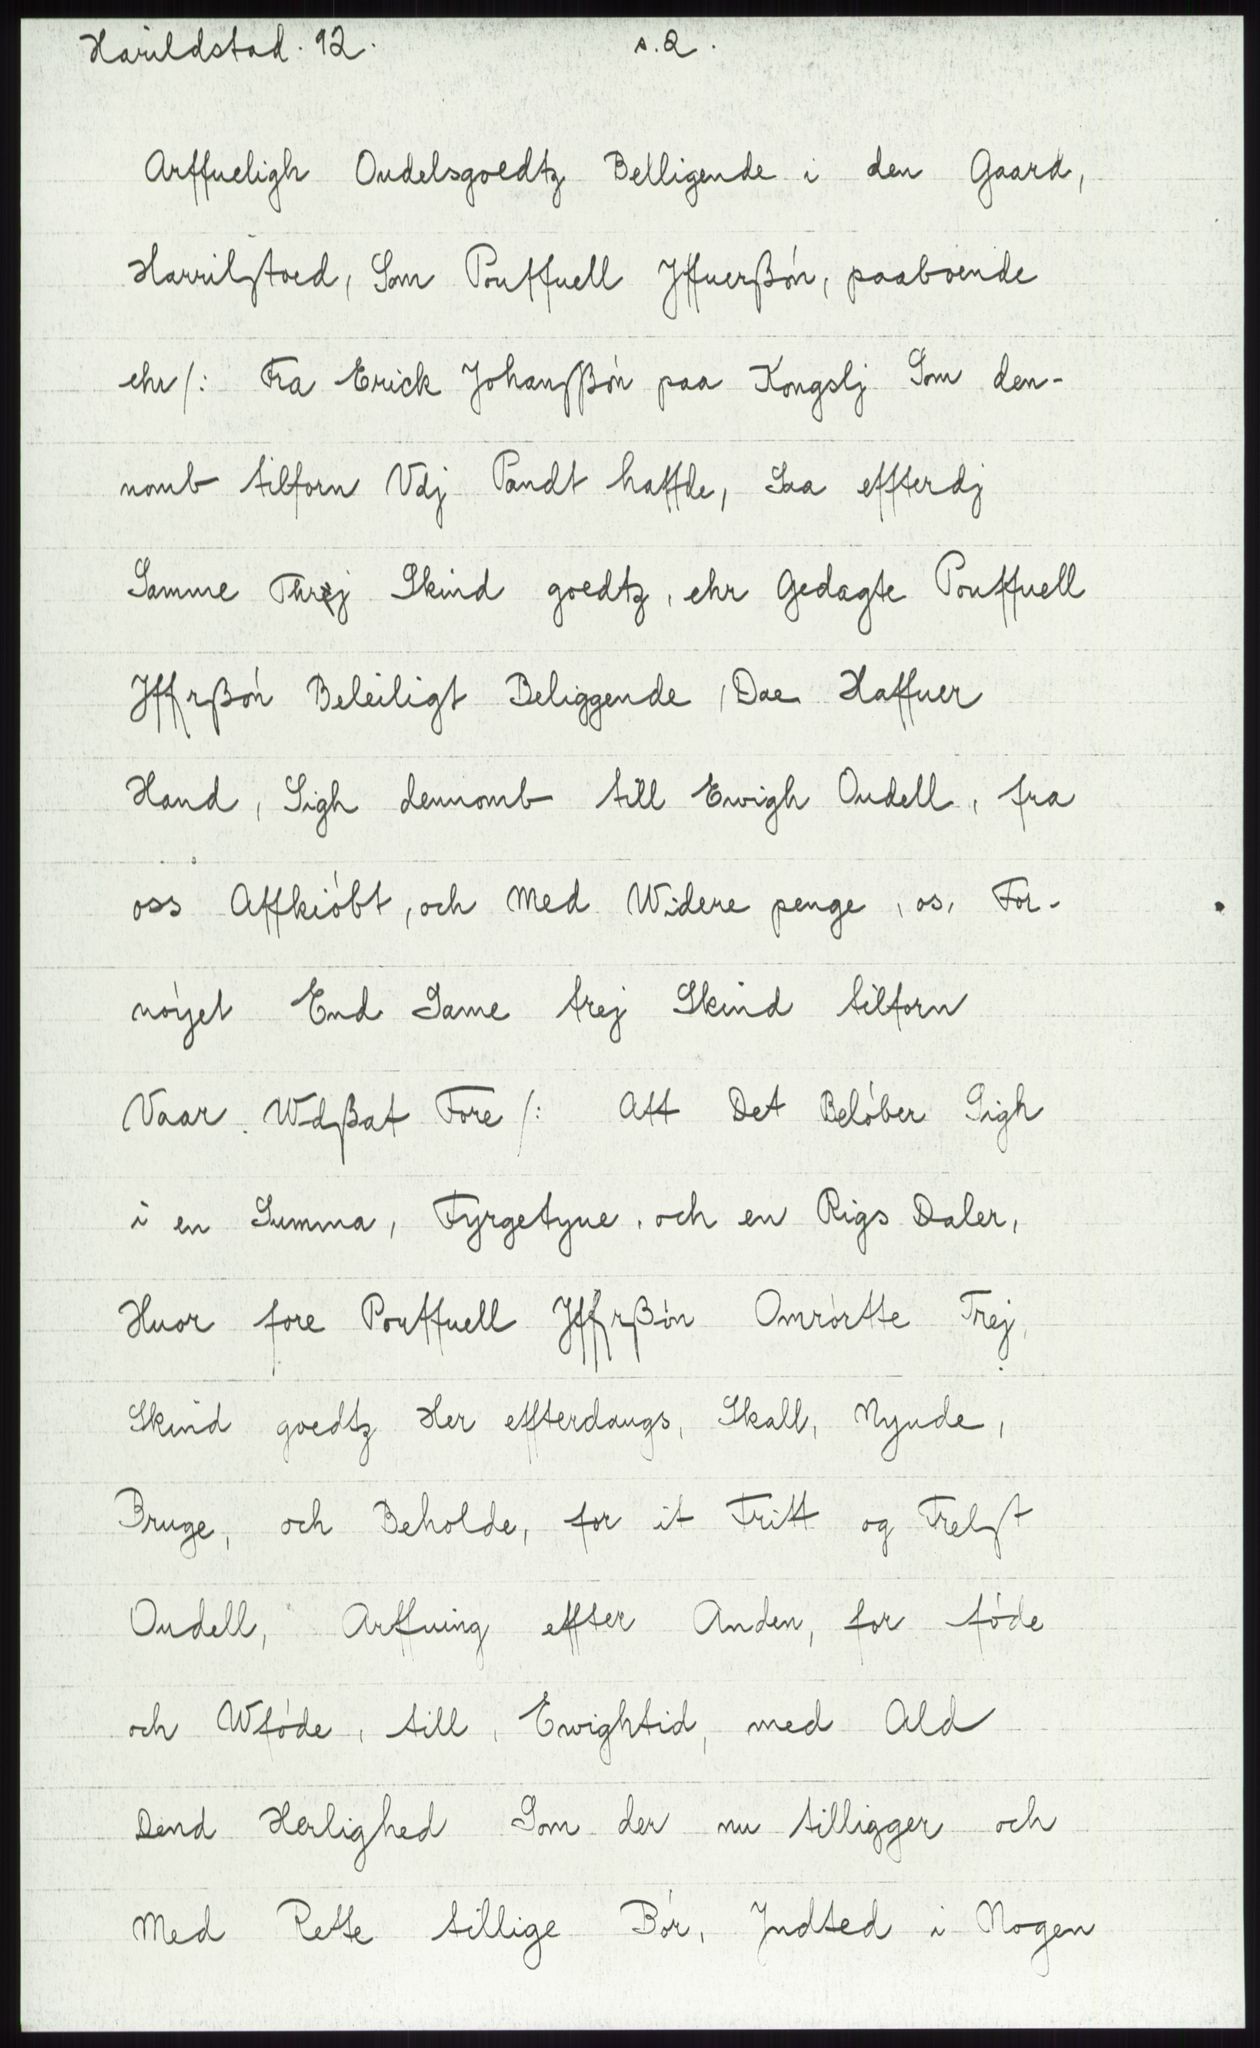 Harildstad. 92. s. 2.
Arffueligh Oudelsgoedtz Belligende i den Gaard,
Harrilstoed, Som Pouffuell Jffuerßön, paaboende
ehr/: Fra Erick Johanßßön paa Kongslj Som den-
nomb tilforn Vdj Pandt haffde, Saa effterdj
Samme Threj Skind goedtz, ehr Gedagte Pouffuell
Jffrßön Beleiligt Beliggende, Dae Haffuer
Hand, Sigh dennomb till Ewigh Oudell, fra
oss Affkiöbt, och Med Widere penge, os, For-
nöyet End Same trej Skind tilforn
Vaar Wdßat Fore/: Att Det Belöber Sigh
i en Summa, Fyrgetyue, och en Rigs Daler,
Huor fore Pouffuell Jffrßön Omrörtte Trej,
Skind goedtz Her effterdaugs, Skall, Nyude,
Bruge, och Beholde, for it Fritt og Frelst
Oudell, Arffuing effter Anden, for föde
och Wföde, till, Ewightid, med Ald
Dend Herlighed Som der nu tilligger och
Med Rette tillige Bör, Jndted i Nogen